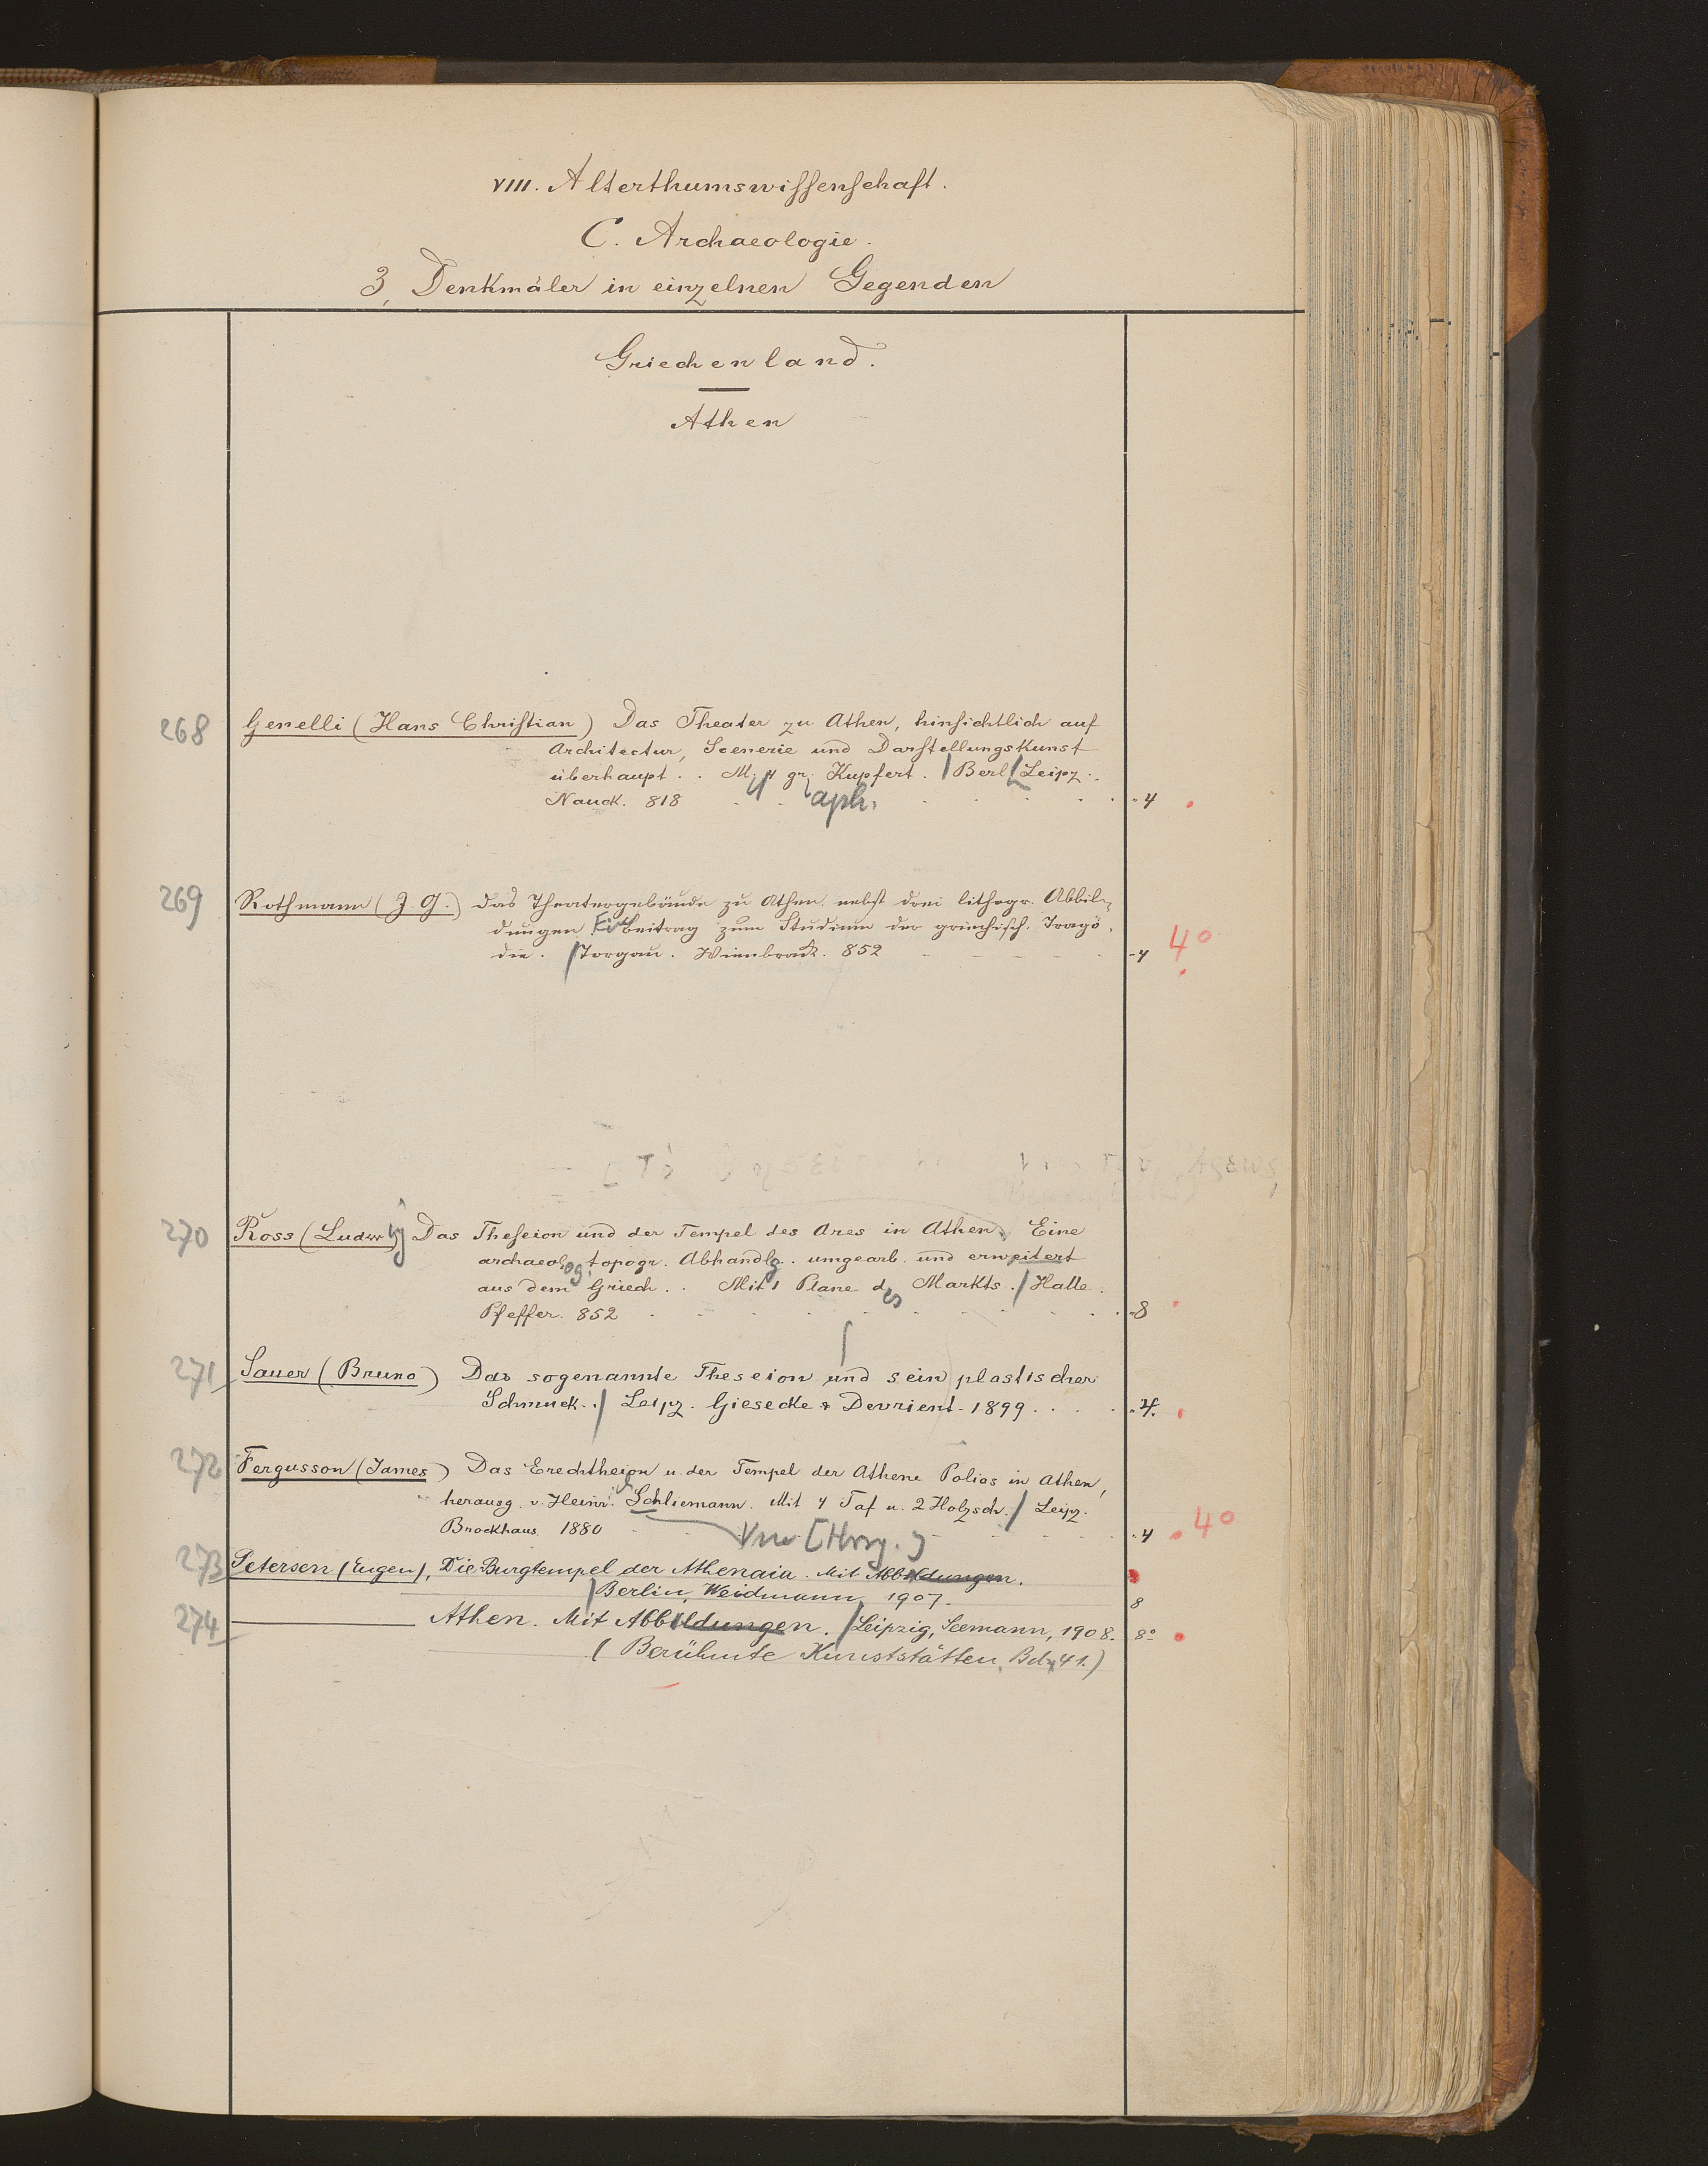 VIII. Alterthumswissenschaft.
C. Archaeologie.
3, Denkmäler in einzelnen Gegenden
Griechenland.
Athen
268 Genelli (Hans Christian) Das Theater zu Athen, hinsichtlich auf
Architectur, Scenerie und Darstellungskunst
überhaupt . . M. 4 gr. Kupfert. / Berl / Leipz.
Nauck. 818 aph. 4
269 Rothmann (J. G.) Das Theatergebäude zu Athen, nebst drei lithogr. Abbil-
dungen. Ein Beitrag zum Studium der griechisch. Tragö-
die. / Torgau. Wienbrack. 852 4 4°
270 Ross (Ludwig) Das Theseion und der Tempel des Ares in Athen. Eine
archaeolog. topogr. Abhandlg. umgearb. und erweitert
aus dem Griech. . Mit 1 Plane des Markts. / Halle.
Pfeffer. 852 8
271 Sauer (Bruno) Das sogenannte Theseion und sein plastischer
Schmuck. / Leipz. Giesecke & Devrient. 1899 . . . 4.
272 Fergusson (James) Das Erechtheion u. der Tempel der Athene Polias in Athen,
herausg. v. Heinr. Schliemann. Mit 4 Taf u. 2 Holzsch. / Leipz.
Brockhaus. 1880 Vw [Hrsg.] 4 4°
273 Petersen (Eugen), Die Burgtempel der Athenaia. Mit Abbildungen.
/ Berlin, Weidmann 1907. 8
274 ——— Athen. Mit Abbildungen. / Leipzig, Seemann, 1908. 8°
(Berühmte Kunststätten, Bd. 41.)